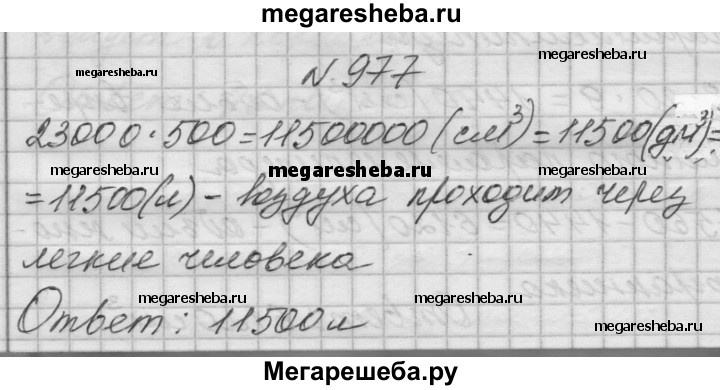 megaresheba.ru
megaresheba.ru
megaresheba.ru
N 977
megaresheba.ru
23000 · 500 = 11500000 (см³) = 11500 (дм³) =
megaresheba.ru
megaresheba.ru
megaresheba.ru
= 11500 (л) - воздуха проходит через
легкие человека
megaresheba.ru
megaresheba.ru
megaresheba.ru
Ответ: 11500 л
megaresheba.ru
Мегарешеба.ру